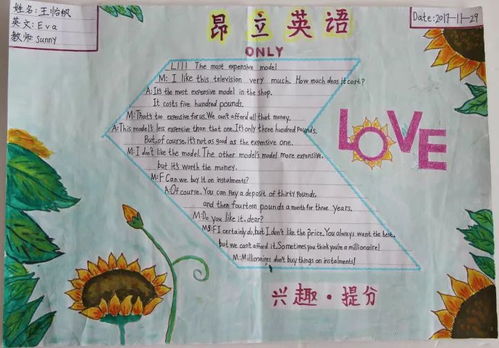 姓名:王怡枫
英文:Eva
教师:Sunny
Date:2017-11-29
昂立英语
ONLY
L111 The most expensive model
M: I like this television very much. How much does it cost?
A: It's the most expensive model in the shop.
It costs five hundred pounds.
M: That's too expensive for us. We can't afford all that money.
A: This model's less expensive than that one. It's only three hundred pounds.
But, of course, it's not as good as the expensive one.
M: I don't like the model. The other model's more expensive,
but it's worth the money.
M: F Can we buy it on instalments?
A: Of course. You can pay a deposit of thirty pounds,
and then fourteen pounds a month for three years.
M: Do you like it, dear?
M: F I certainly do, but I don't like the price. You always want the best,
but we can't afford it. Sometimes you think you're a millionaire!
M: Millionaires don't buy things on instalments!
LOVE
兴趣·提分